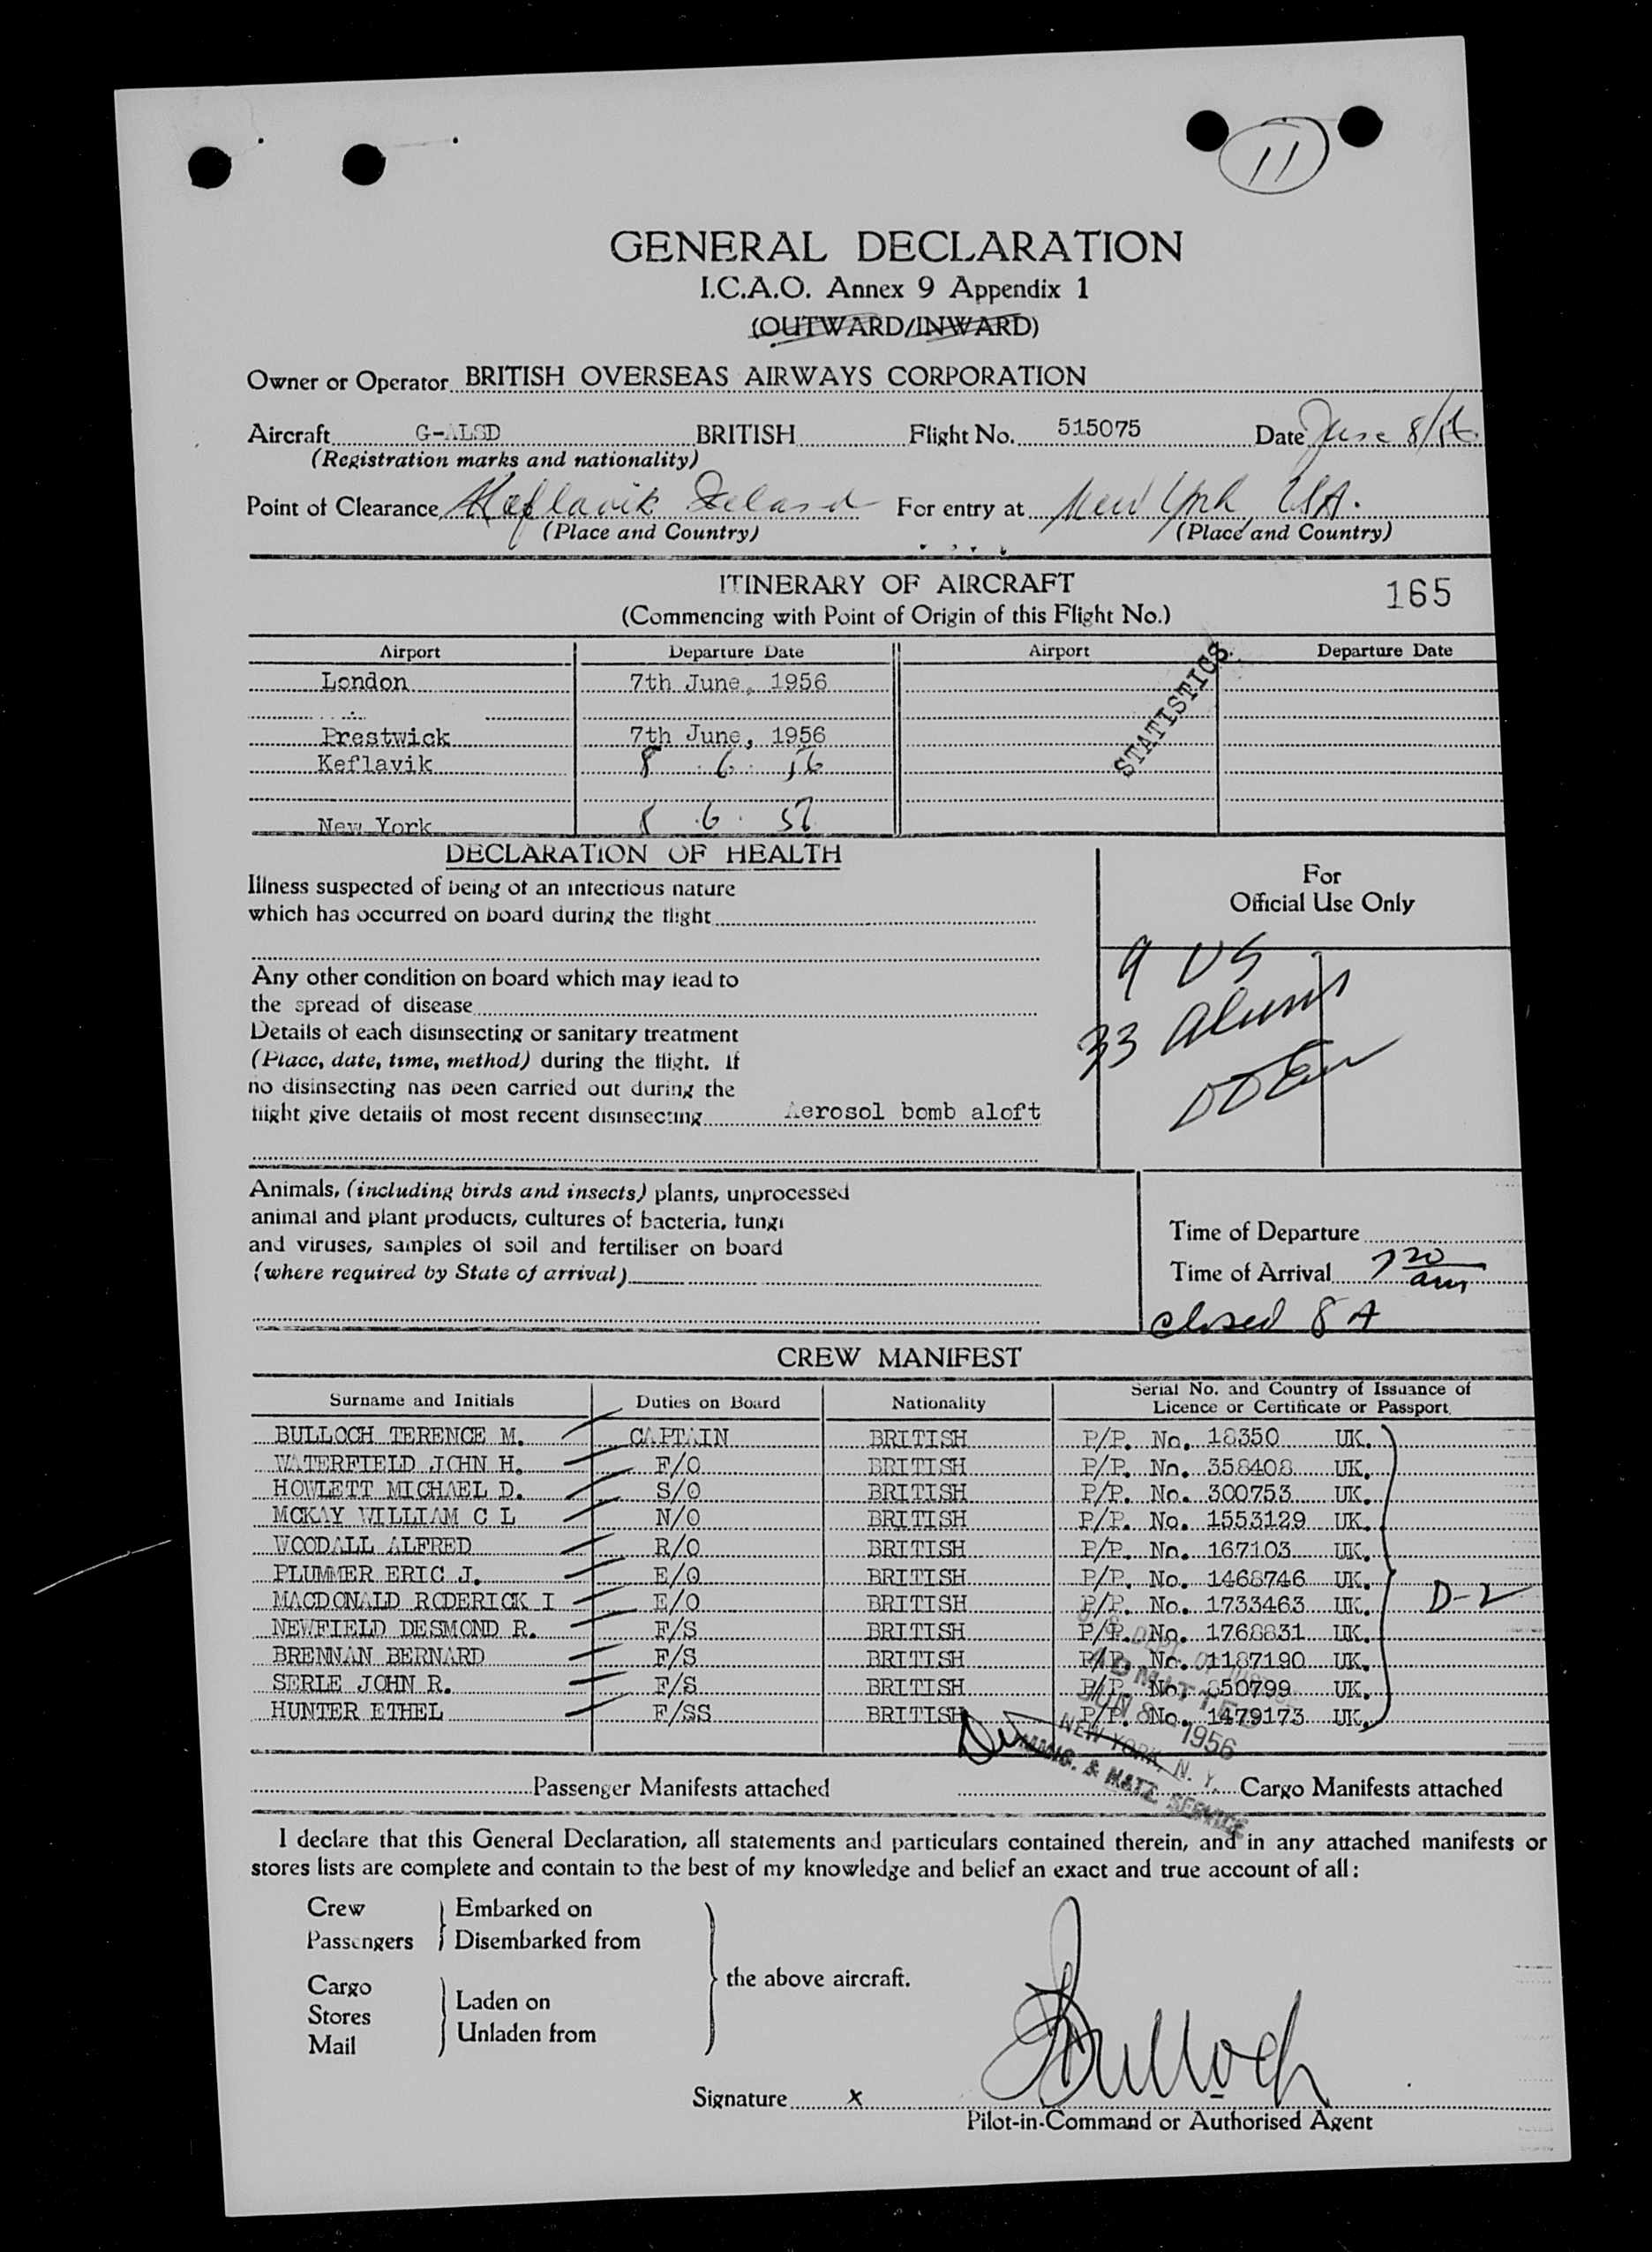 11
GENERAL DECLARATION
I.C.A.O. Annex 9 Appendix 1
(OUTWARD/INWARD)
Owner or Operator BRITISH OVERSEAS AIRWAYS CORPORATION
Aircraft G-ALSD BRITISH Flight No. 515075 Date June 8/56
(Registration marks and nationality)
Point of Clearance Keflavik Iceland For entry at New York USA.
(Place and Country) (Place and Country)
ITINERARY OF AIRCRAFT 165
(Commencing with Point of Origin of this Flight No.)
Airport Departure Date Airport Departure Date
London 7th June, 1956
STATISTICS
Prestwick 7th June, 1956
Keflavik 8 . 6 . 56
New York 8 . 6 .
DECLARATION OF HEALTH
For
Official Use Only
Illness suspected of being of an infectious nature
which has occurred on board during the flight
9 US
33 aliens
Any other condition on board which may lead to
the spread of disease
Details of each disinsecting or sanitary treatment
(Place, date, time, method) during the flight. If
no disinsecting has been carried out during the
flight give details of most recent disinsecting Aerosol bomb aloft
Animals, (including birds and insects) plants, unprocessed
animal and plant products, cultures of bacteria, fungi
and viruses, samples of soil and fertiliser on board
(where required by State of arrival)
Time of Departure
Time of Arrival 7 20 am
closed 8 A
CREW MANIFEST
Surname and Initials Duties on Board Nationality Serial No. and Country of Issuance of
Licence or Certificate or Passport.
BULLOCH TERENCE M. CAPTAIN BRITISH P/P. No. 18350 UK.
WATERFIELD JOHN H. F/O BRITISH P/P. No. 358408 UK.
HOWLETT MICHAEL D. S/O BRITISH P/P. No. 300753 UK.
MCKAY WILLIAM C L N/O BRITISH P/P. No. 1553129 UK.
WOODALL ALFRED R/O BRITISH P/P. No. 167103 UK.
PLUMMER ERIC J. E/O BRITISH P/P. No. 1468746 UK.
MACDONALD RODERICK I E/O BRITISH P/P. No. 1733463 UK. D-2
NEWFIELD DESMOND R. F/S BRITISH P/P. No. 1768831 UK.
BRENNAN BERNARD F/S BRITISH P/P. No. 1187190 UK.
SERLE JOHN R. F/S BRITISH P/P. No. 850799 UK.
HUNTER ETHEL F/SS BRITISH P/P. No. 1479173 UK.
ADMITTED
JUN 8 - 1956
NEW YORK, N. Y.
IMMIG. & NATZ. SERVICE
Passenger Manifests attached Cargo Manifests attached
I declare that this General Declaration, all statements and particulars contained therein, and in any attached manifests or
stores lists are complete and contain to the best of my knowledge and belief an exact and true account of all:
Crew Embarked on
Passengers Disembarked from
the above aircraft.
Cargo
Stores Laden on
Mail Unladen from
Signature x Bulloch
Pilot-in-Command or Authorised Agent